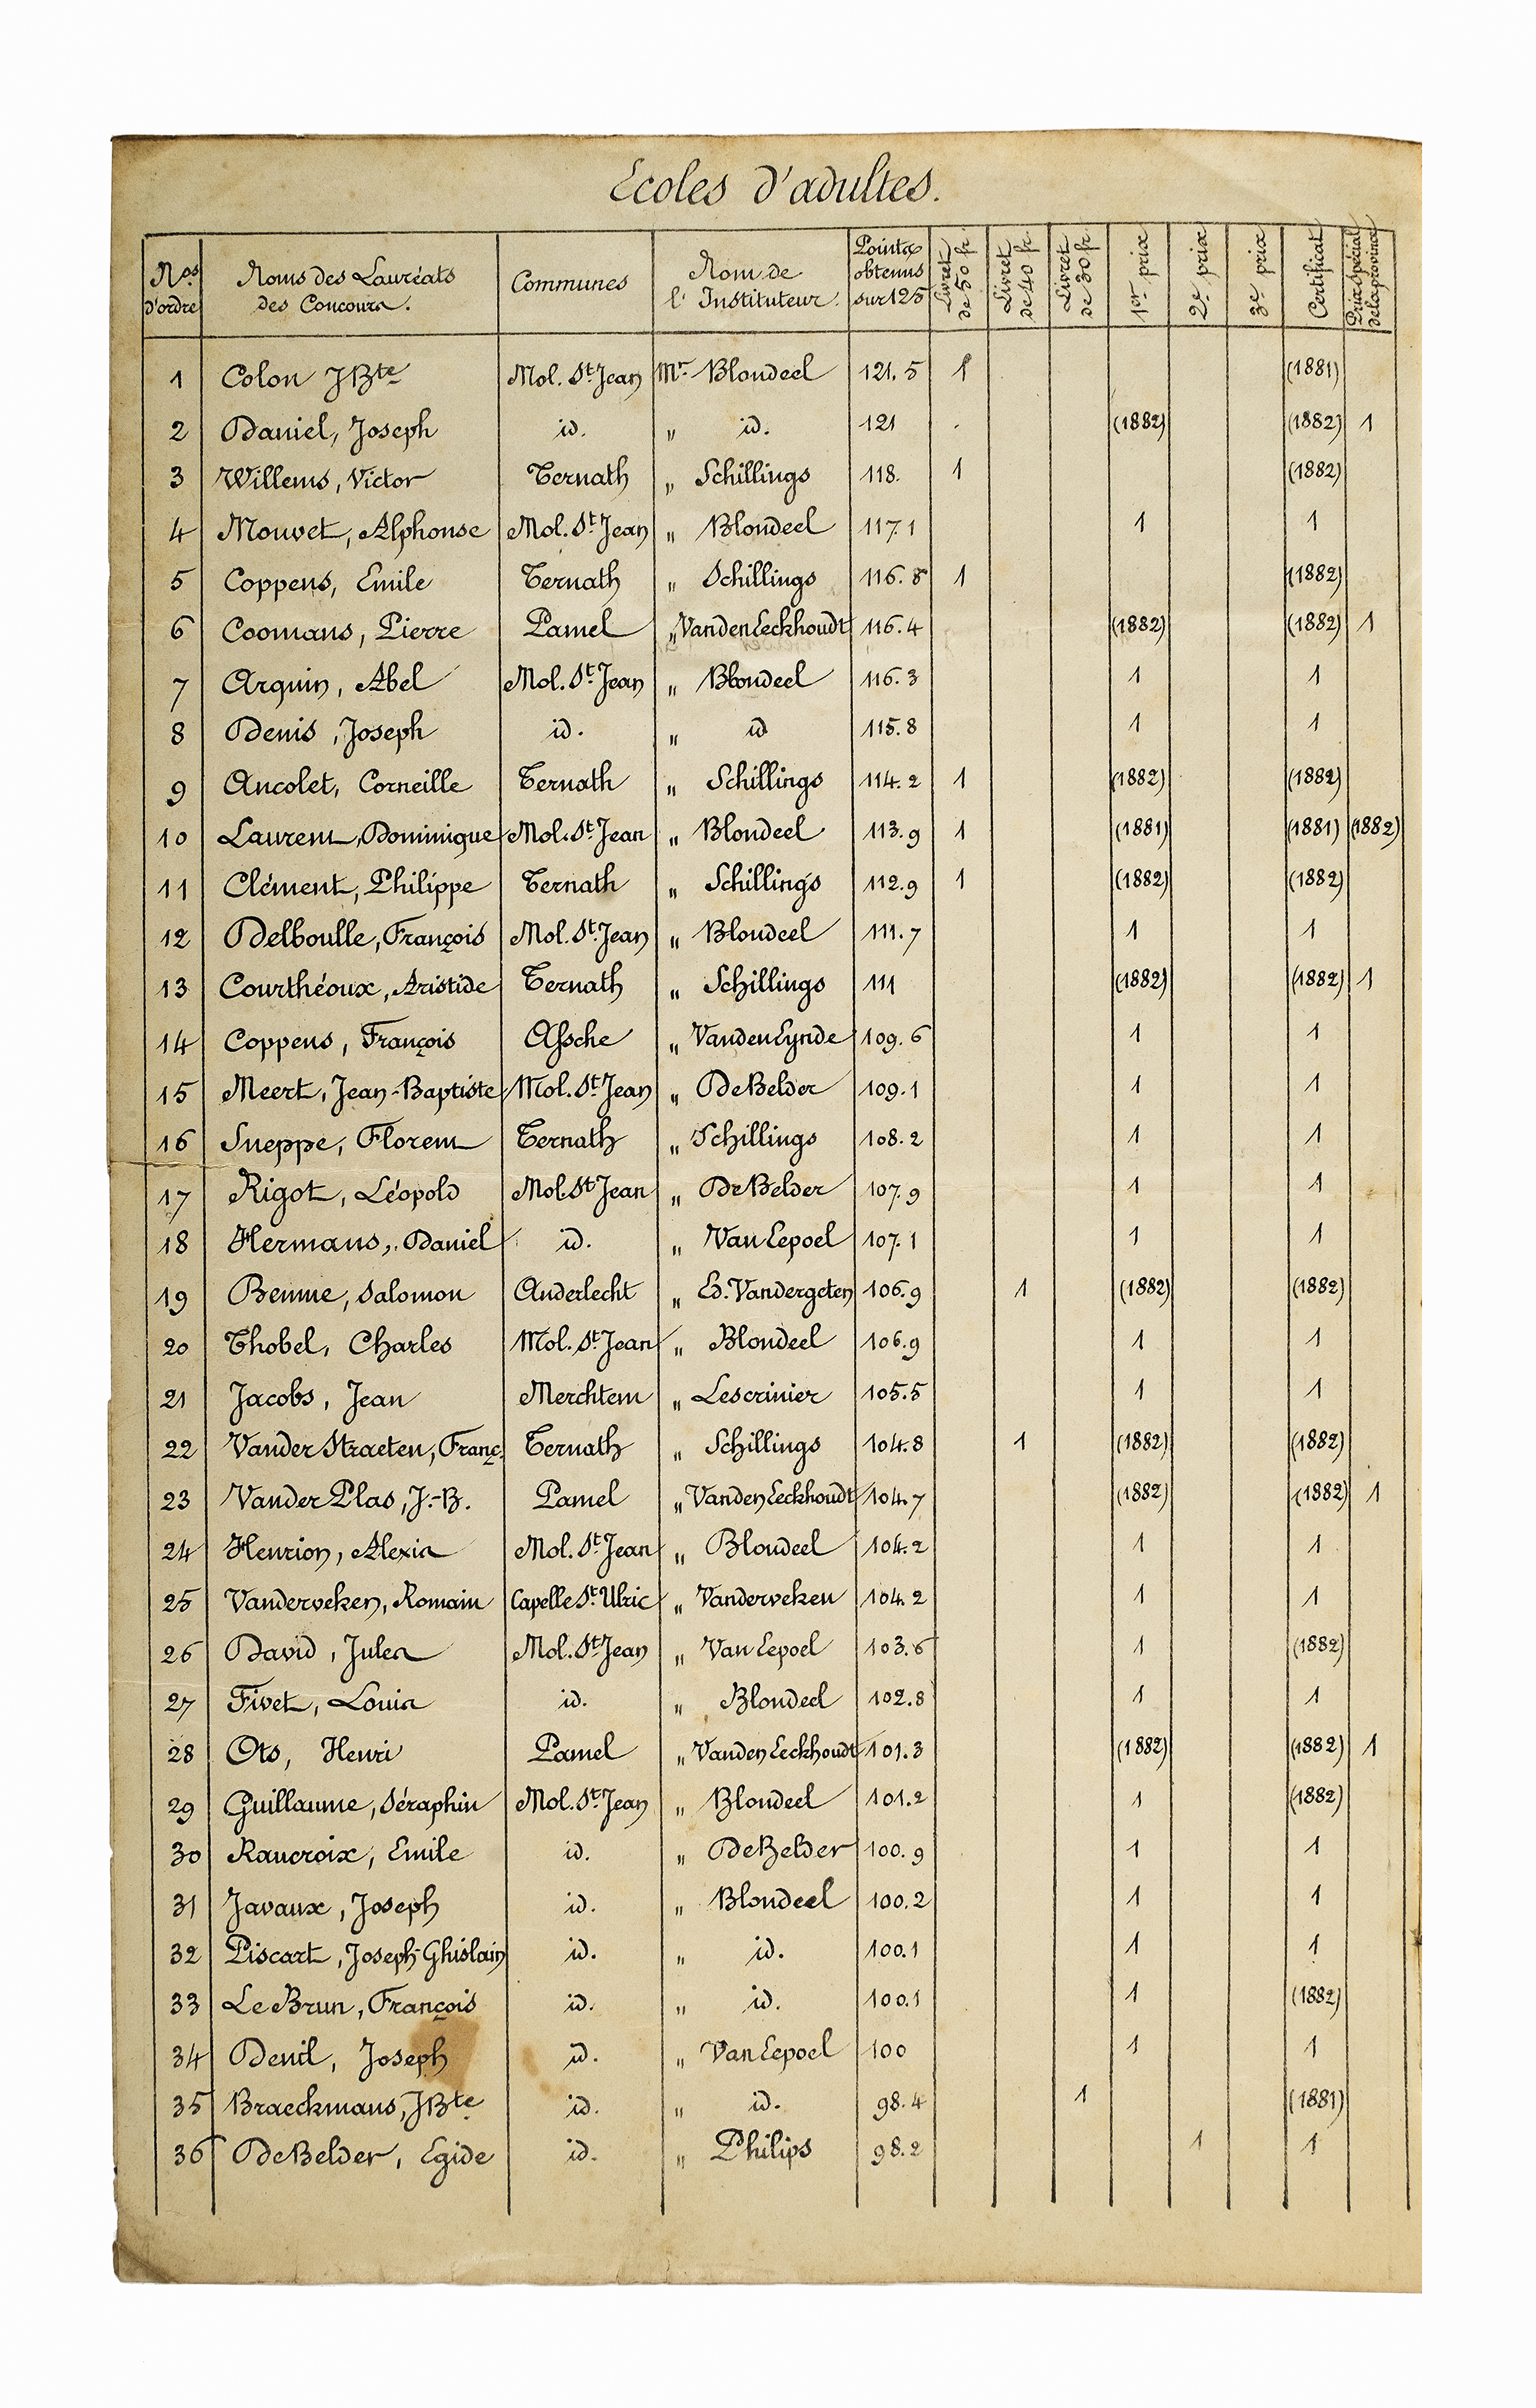 Ecoles d'adultes.
Nos d'ordre Noms des Lauréats des Concours. Communes Nom de l'Instituteur. Points obtenus sur 125 Livret de 50 fr. Livret de 40 fr. Livret de 30 fr. 1er prix 2e prix 3e prix Certificat Prix spécial de la province
1 Colon JBte Mol. St Jean Mr Blondeel 121.5 1 (1881)
2 Daniel, Joseph id. " id. 121 (1882) (1882) 1
3 Willems, Victor Ternath " Schillings 118. 1 (1882)
4 Mouvet, Alphonse Mol. St Jean " Blondeel 117.1 1 1
5 Coppens, Emile Ternath " Schillings 116.8 1 (1882)
6 Coomans, Pierre Pamel " Vanden Eeckhoudt 116.4 (1882) (1882) 1
7 Arquin, Abel Mol. St Jean " Blondeel 116.3 1 1
8 Denis, Joseph id. " id 115.8 1 1
9 Ancolet, Corneille Ternath " Schillings 114.2 1 (1882) (1882)
10 Laurent, Dominique Mol. St Jean " Blondeel 113.9 1 (1881) (1881) (1882)
11 Clément, Philippe Ternath " Schillings 112.9 1 (1882) (1882)
12 Delboulle, François Mol. St Jean " Blondeel 111.7 1 1
13 Courthéoux, Aristide Ternath " Schillings 111 (1882) (1882) 1
14 Coppens, François Assche " Vanden Eynde 109.6 1 1
15 Meert, Jean-Baptiste Mol. St Jean " De Belder 109.1 1 1
16 Sneppe, Florent Ternath " Schillings 108.2 1 1
17 Rigot, Léopold Mol. St Jean " De Belder 107.9 1 1
18 Hermans, Daniel id. " Van Eepoel 107.1 1 1
19 Benme, Salomon Anderlecht " Ed. Vandergeten 106.9 1 (1882) (1882)
20 Thobel, Charles Mol. St Jean " Blondeel 106.9 1 1
21 Jacobs, Jean Merchtem " Lescrinier 105.5 1 1
22 Vander Straeten, Franç. Ternath " Schillings 104.8 1 (1882) (1882)
23 Vander Plas, J.-B. Pamel " Vanden Eeckhoudt 104.7 (1882) (1882) 1
24 Henrion, Alexis Mol. St Jean " Blondeel 104.2 1 1
25 Vanderveken, Romain Capelle St Ulric " Vanderveken 104.2 1 1
26 David, Jules Mol. St Jean " Van Eepoel 103.6 1 (1882)
27 Fivet, Louis id. " Blondeel 102.8 1 1
28 Ots, Henri Pamel " Vanden Eeckhoudt 101.3 (1882) (1882) 1
29 Guillaume, Séraphin Mol. St Jean " Blondeel 101.2 1 (1882)
30 Raucroix, Emile id. " De Belder 100.9 1 1
31 Javaux, Joseph id. " Blondeel 100.2 1 1
32 Piscart, Joseph-Ghislain id. " id. 100.1 1 1
33 Le Brun, François id. " id. 100.1 1 (1882)
34 Denil, Joseph id. " Van Eepoel 100 1 1
35 Braeckmans, JBte id. " id. 98.4 1 (1881)
36 De Belder, Egide id. " Philips 98.2 1 1